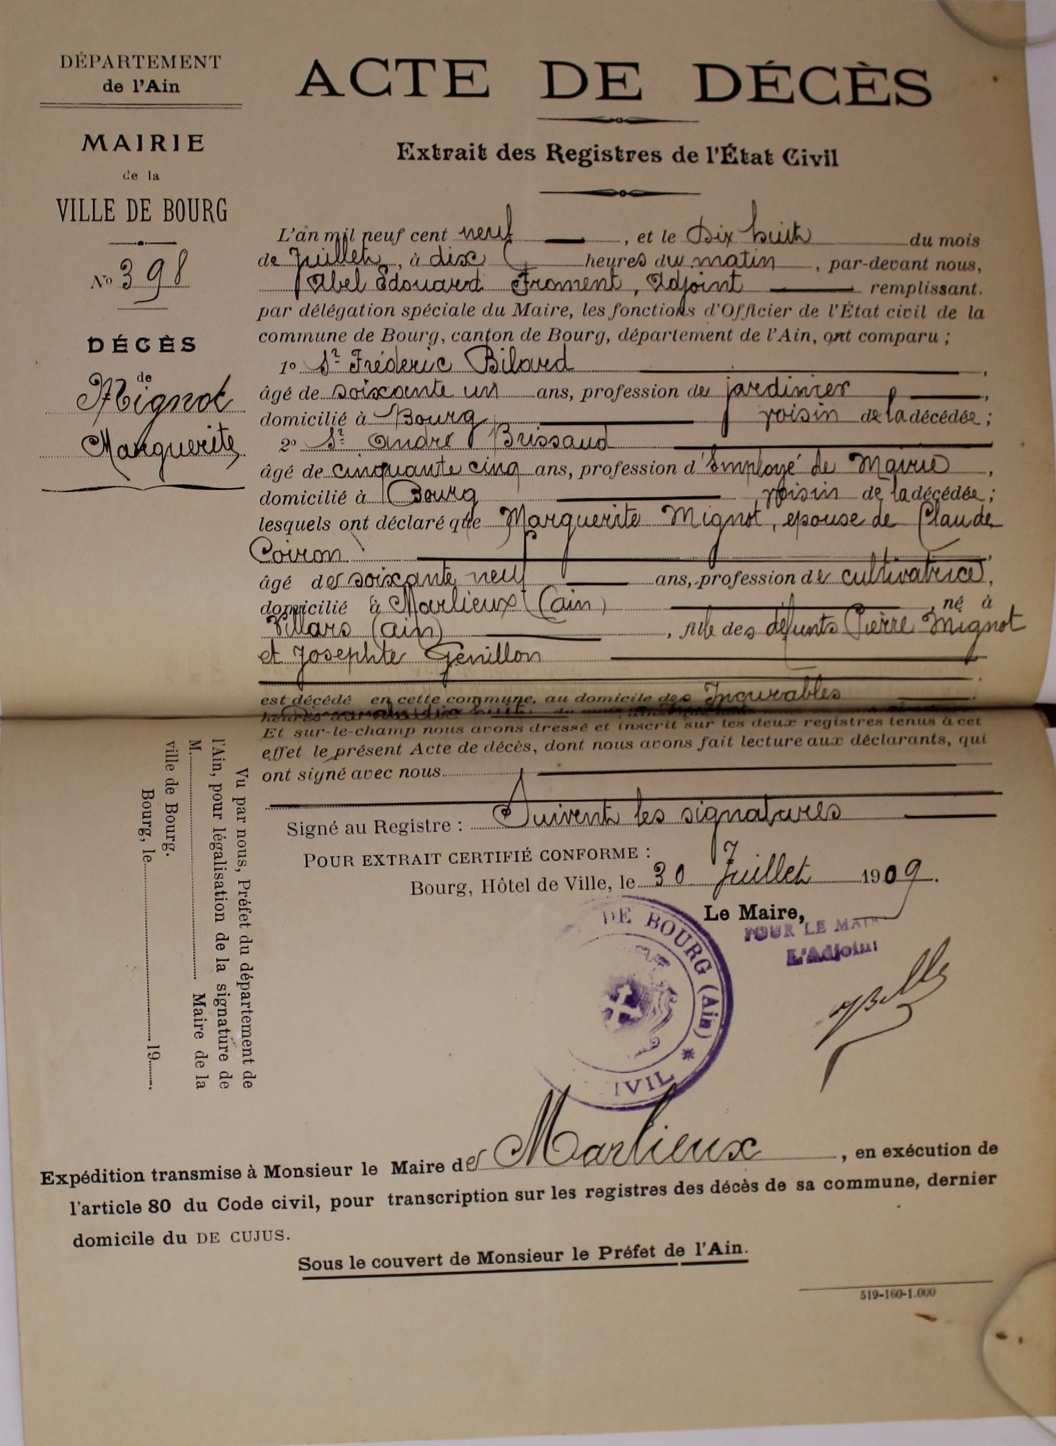 DÉPARTEMENT
de l'Ain
MAIRIE
de la
VILLE DE BOURG
No 398
DÉCÈS
de
Mignot
Marguerite
ACTE DE DÉCÈS
Extrait des Registres de l'État Civil
L'an mil neuf cent neuf, et le Dix huit du mois
de Juillet, à dix heures du matin, par-devant nous,
Abel Edouard Froment, Adjoint remplissant
par délégation spéciale du Maire, les fonctions d'Officier de l'État civil de la
commune de Bourg, canton de Bourg, département de l'Ain, ont comparu ;
1o Sr Fréderic Bilard,
âgé de soixante un ans, profession de jardinier,
domicilié à Bourg voisin de la décédée ;
2o Sr André Brissaud
âgé de cinquante cinq ans, profession d'Employé de Mairie,
domicilié à Bourg, voisin de la décédée ;
lesquels ont déclaré que Marguerite Mignot, épouse de Claude
Coiron,
âgé de soixante neuf ans, profession de cultivatrice,
domicilié à Marlieux (Ain), né à
Villars (Ain), fille des défunts Pierre Mignot
et Josephte Génillon
est décédé en cette commune, au domicile des Incurables
Et sur-le-champ nous avons dressé et inscrit sur les deux registres tenus à cet
effet le présent Acte de décès, dont nous avons fait lecture aux déclarants, qui
ont signé avec nous.
Signé au Registre : Suivent les signatures
POUR EXTRAIT CERTIFIÉ CONFORME :
Bourg, Hôtel de Ville, le 30 Juillet 1909.
Le Maire,
POUR LE MAIRE
L'Adjoint
DE BOURG (Ain) * IVIL
Vu par nous, Préfet du département de
l'Ain, pour légalisation de la signature de
M. Maire de la
ville de Bourg.
Bourg, le 19
Expédition transmise à Monsieur le Maire de Marlieux, en exécution de
l'article 80 du Code civil, pour transcription sur les registres des décès de sa commune, dernier
domicile du DE CUJUS.
Sous le couvert de Monsieur le Préfet de l'Ain.
519-160-1.000